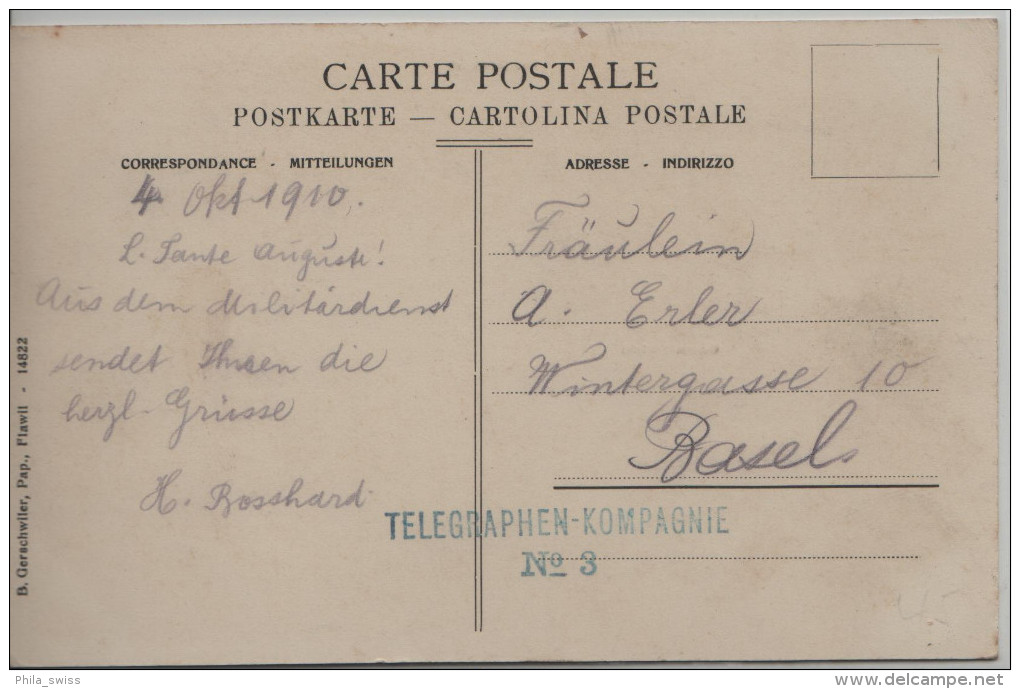 CARTE POSTALE
POSTKARTE — CARTOLINA POSTALE
CORRESPONDANCE - MITTEILUNGEN
4. Okt 1910.
L. Tante Auguste!
Aus dem Militärdienst
sendet Ihnen die
herzl. Grüsse
H. Bosshard
ADRESSE - INDIRIZZO
Fräulein
A. Erler
Wintergasse 10
Basel
TELEGRAPHEN-KOMPAGNIE
No 3
B. Gerschwiler, Pap., Flawil - 14822
Phila_swiss
www.delcampe.net